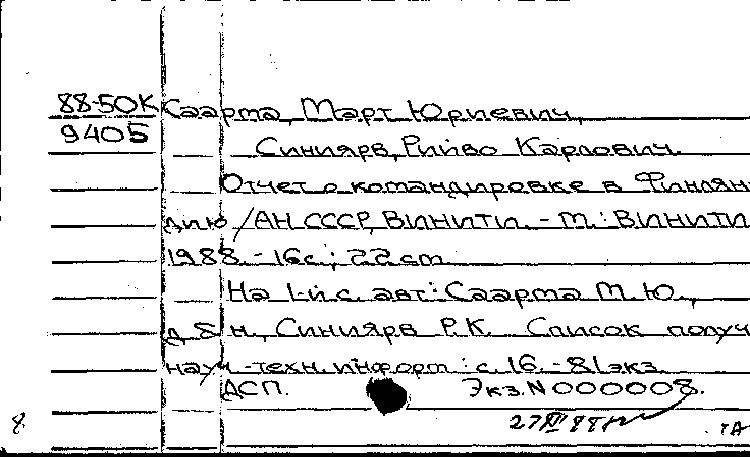 88-50К Саарма, Март Юриевич,
9405 Синиярв, Рийво Карлович.
Отчет о командировке в Финлян-
дию / АН СССР, ВИНИТИ. - М.: ВИНИТИ
1988. - 16 с.; 22 см.
На 1-й с. авт.: Саарма М.Ю.,
д. б. н., Синиярв Р.К. Список получ.
науч.-техн. информ.: с. 16. - 81 экз.
ДСП. Экз. N 000008.
8.